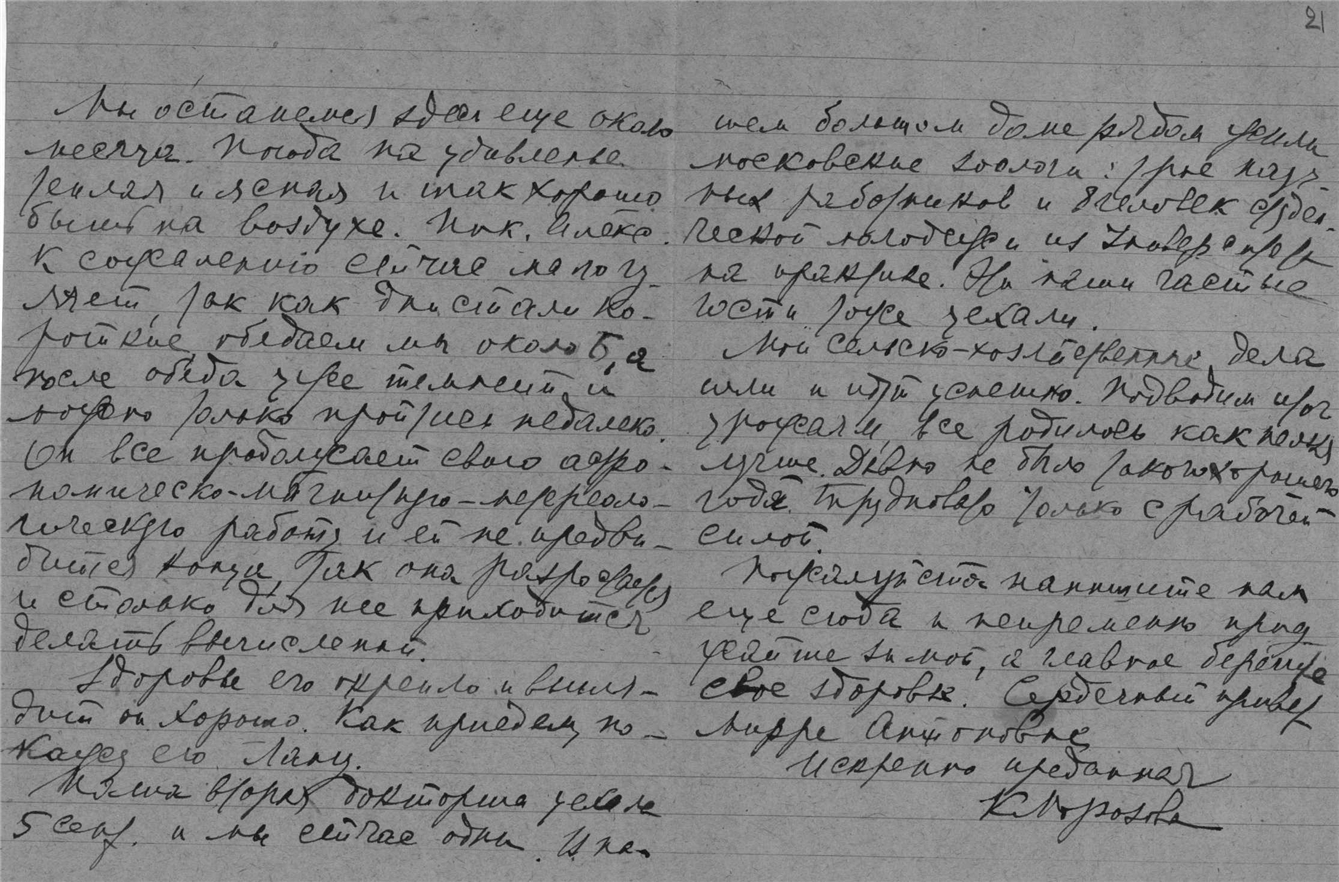 21
Мы останемся здесь еще около
месяца. Погода на удивленье
теплая и ясная и так хорошо
быть на воздухе. Ник. Алекс.
к сожалению сейчас мало гу-
ляет, так как дни стали ко-
роткие, обедаем мы около 5, а
после обеда уже темнеет и
можно только пройтись недалеко.
Он все продолжает свою астро-
номическо-магнитную-метеороло-
гическую работу и ей не предви-
дится конца, так она разрослась
и столько для нее приходится
делать вычислений.
Здоровье его окрепло и выгля-
дит он хорошо. Как приедем, по-
кажу его Лангу.
Наша вторая докторша уехала
5 сент. и мы сейчас одни. В на-
шем большом доме рядом жили
московские зоологи: трое науч-
ных работников и 8 человек студен-
ческой молодежи из Университета
на практике. Эти наши частые
гости тоже уехали.
Мои сельско-хозяйственные дела
шли и идут успешно. Подводим итог
урожаям, все родилось как нельзя
лучше. Давно не было такого хорошего
года. Трудновато только с рабочей
силой.
Пожалуйста напишите нам
еще сюда и непременно приез-
жайте зимой, а главное берегите
свое здоровье. Сердечный привет
Мирре Антоновне
Искренно преданная
К Морозова